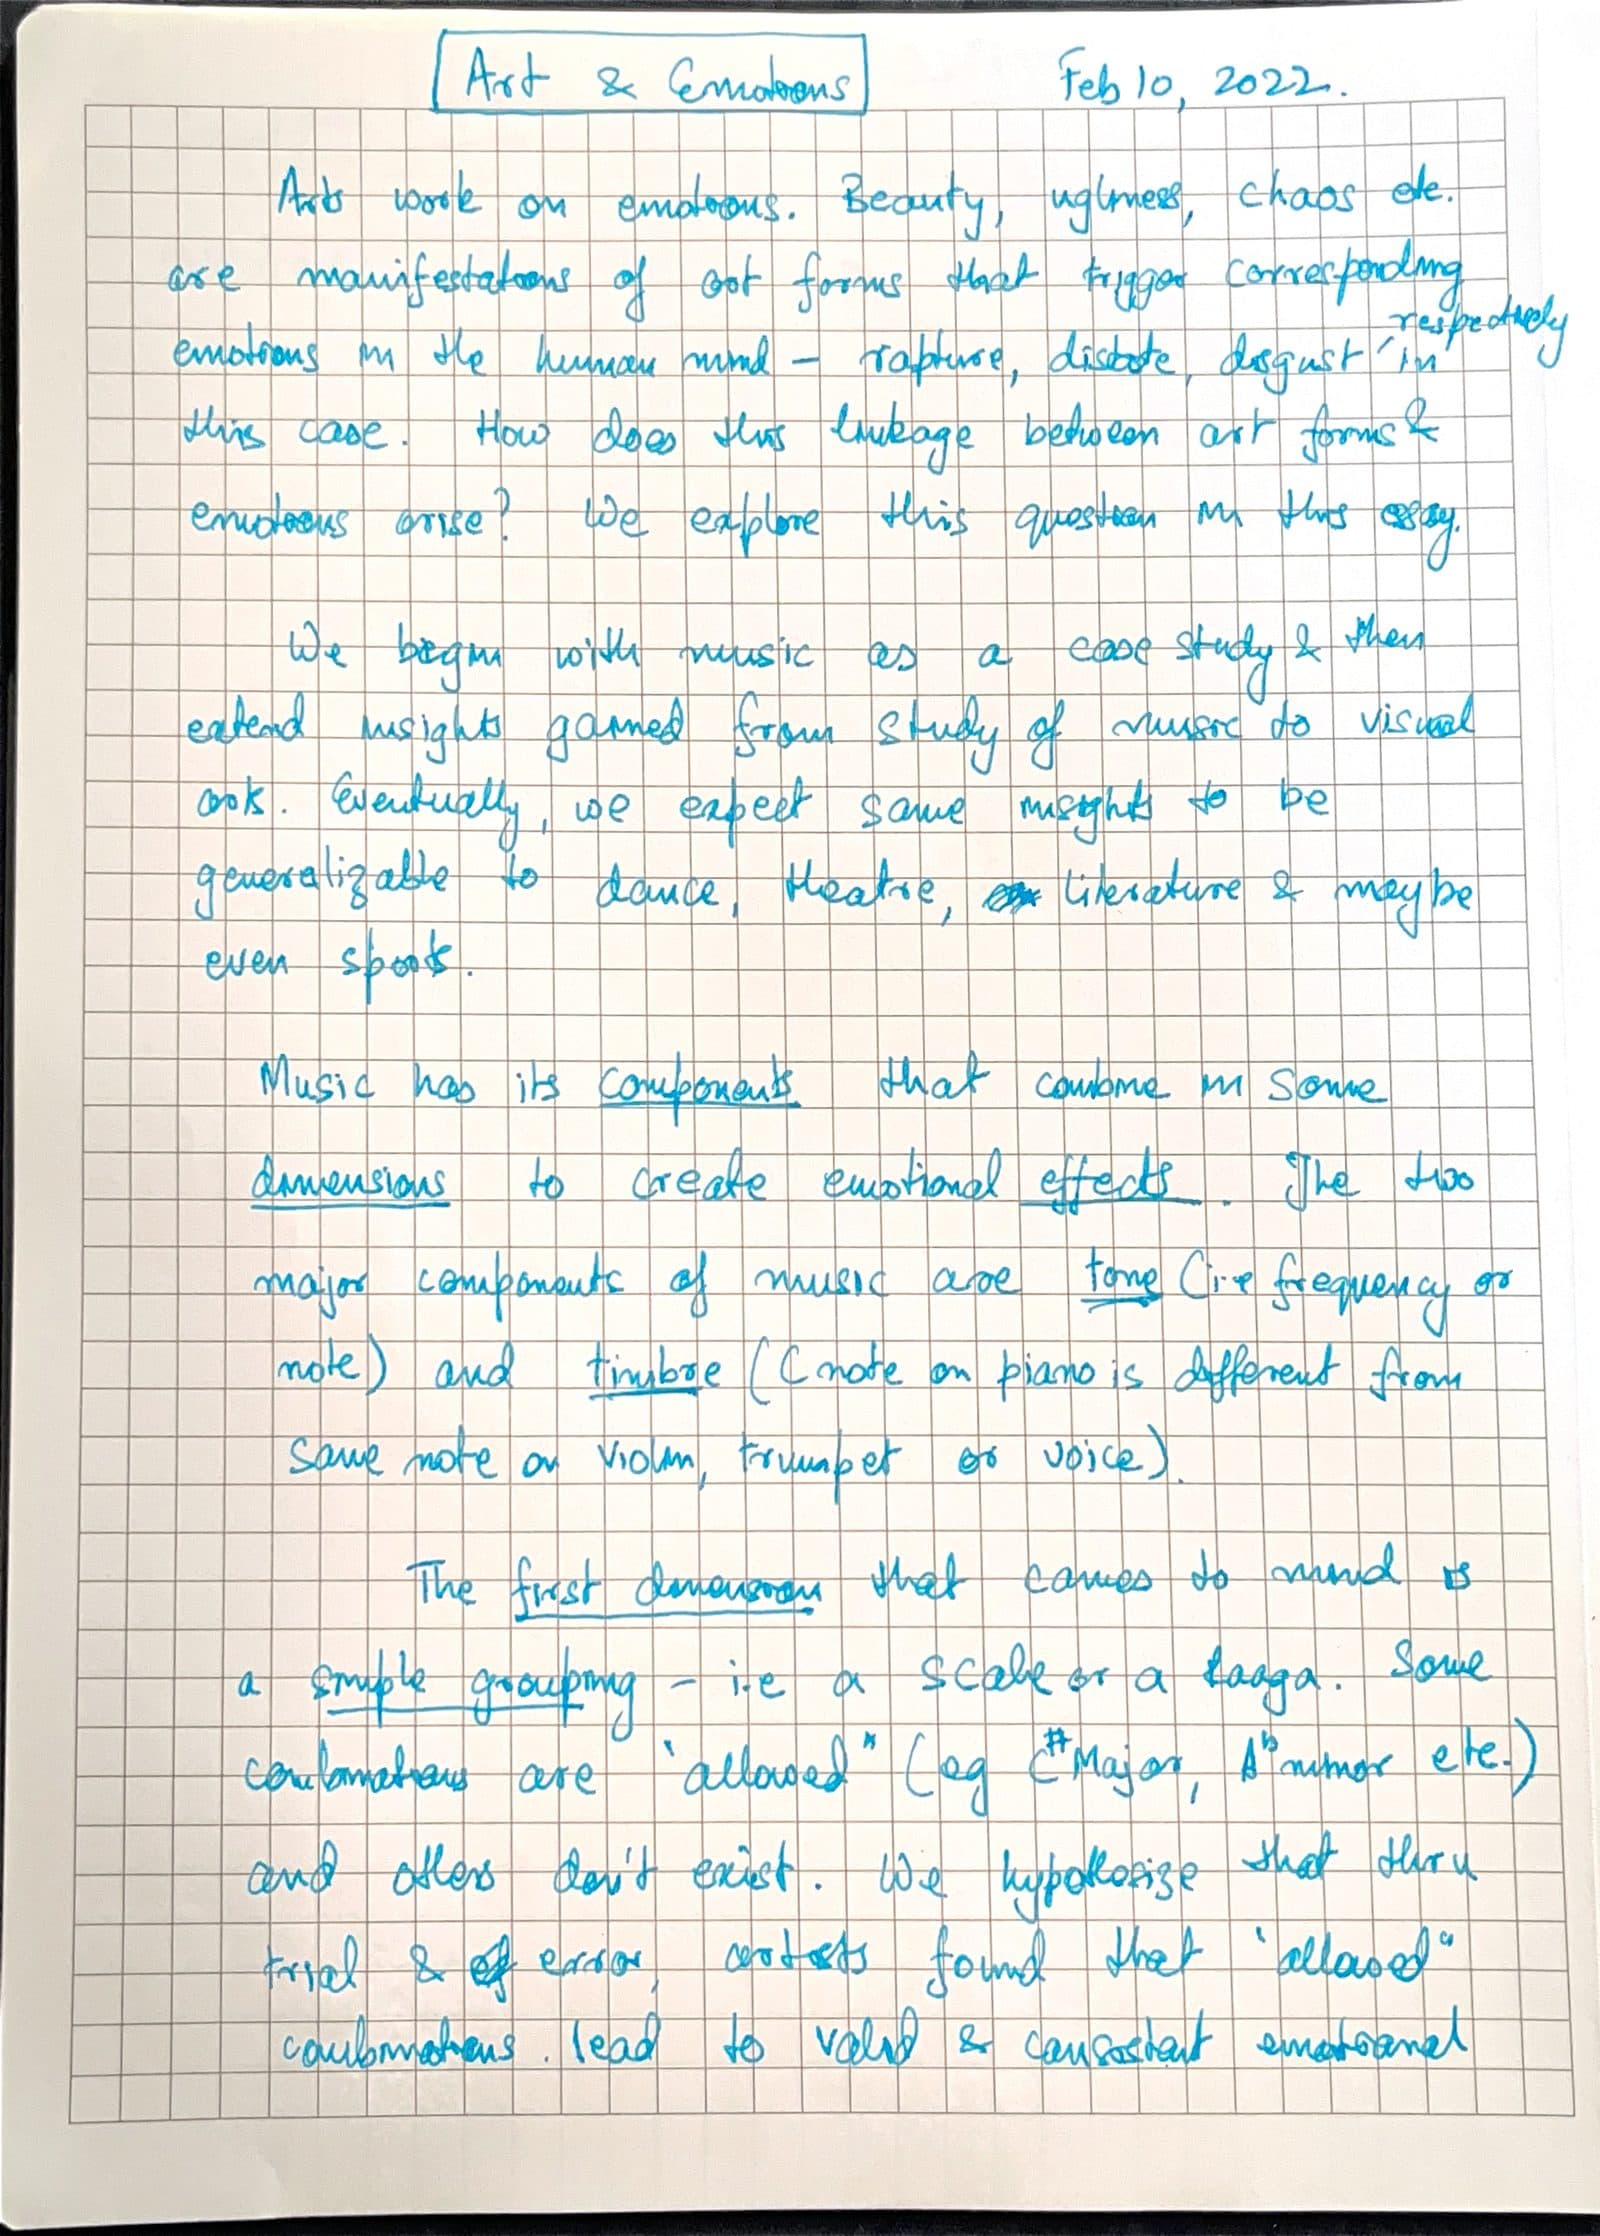 Art & Emotions
Feb 10, 2022.
Arts work on emotions. Beauty, ugliness, chaos etc.
are manifestations of art forms that trigger corresponding
respectively
emotions in the human mind – rapture, distaste, disgust in
this case. How does this linkage between art forms &
emotions arise? We explore this question in this essay.
We begin with music as a case study & then
extend insights gained from study of music to visual
arts. Eventually, we expect same insights to be
generalizable to dance, theatre, literature & maybe
even sports.
Music has its components that combine in some
dimensions to create emotional effects. The two
major components of music are tone (i.e frequency or
note) and timbre (C note on piano is different from
same note on violin, trumpet or voice).
The first dimension that comes to mind is
a simple grouping – i.e a scale or a raaga. Some
combinations are "allowed" (eg C# Major, Ab minor etc.)
and others don't exist. We hypothesize that thru
trial & error, artists found that "allowed"
combinations. lead to valid & consistent emotional